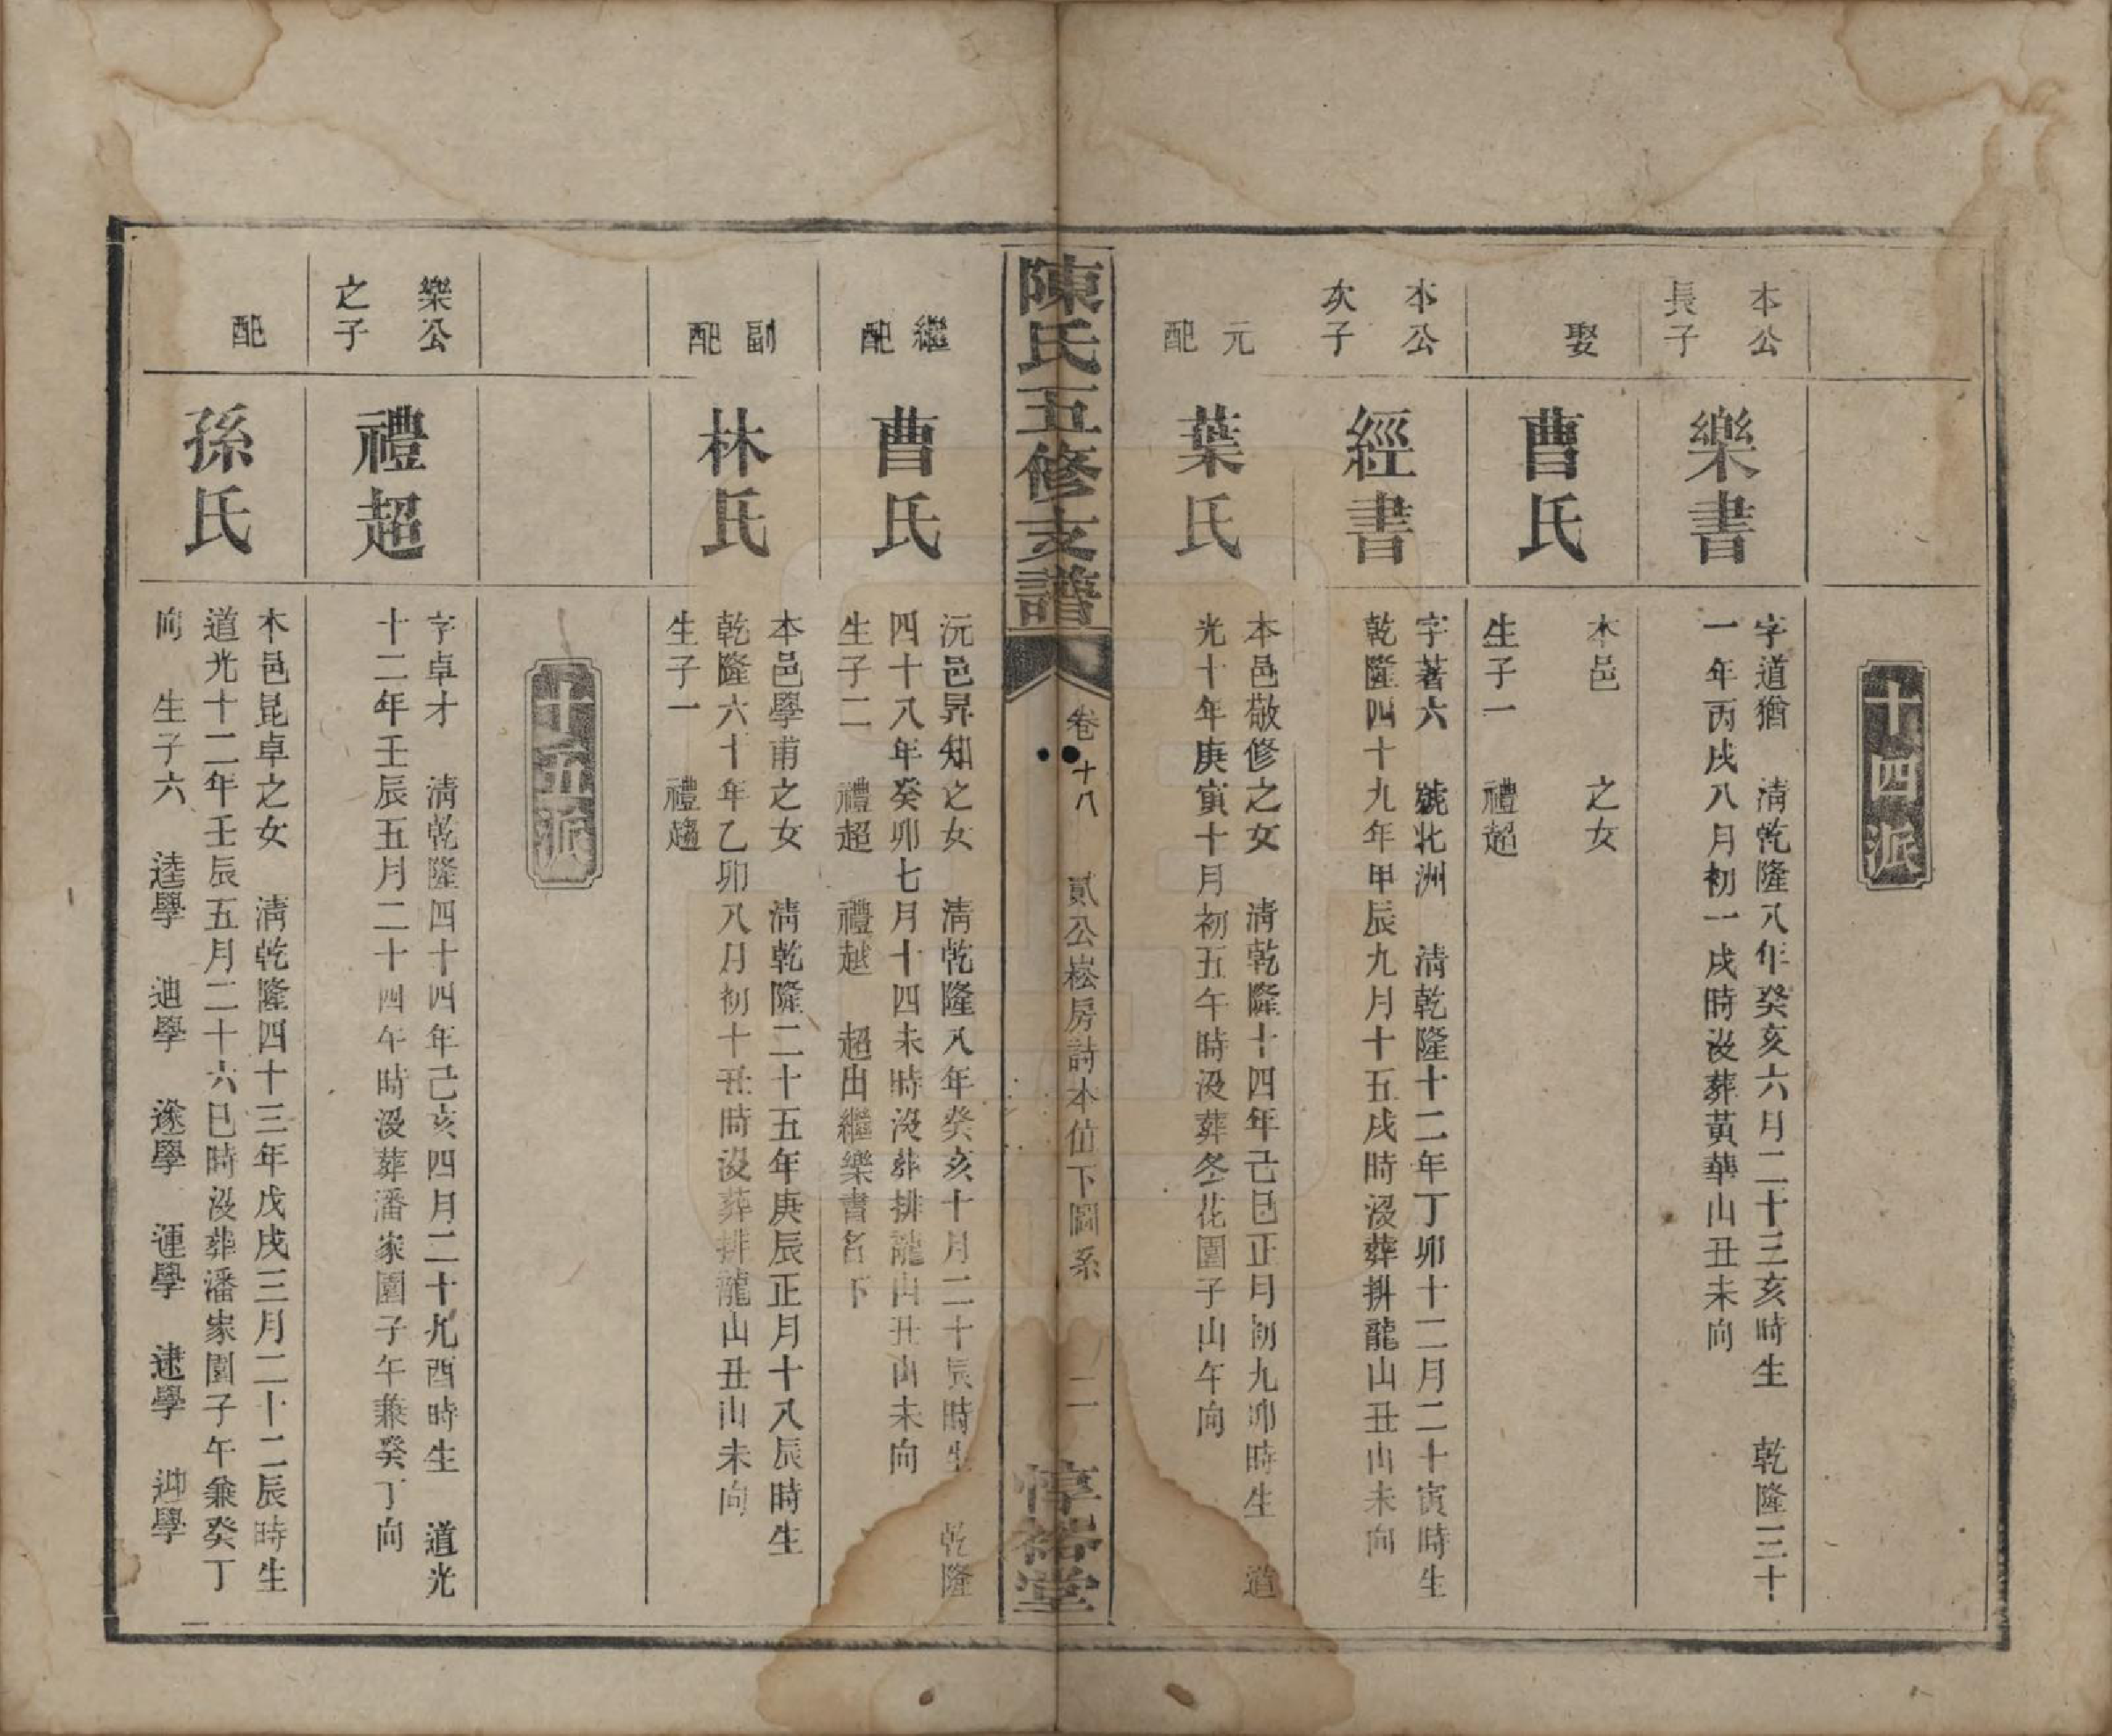 十四派
本公
長子
樂書
字道猶　清乾隆八年癸亥六月二十三亥時生　乾隆三十
一年丙戌八月初一戌時沒葬黃華山丑未向
娶
曹氏
本邑　　之女
生子一　禮超
本公
次子
經書
字著六　號北洲　清乾隆十二年丁卯十二月二十寅時生
乾隆四十九年甲辰九月十五戌時沒葬排龍山丑山未向
元
配
葉氏
本邑敬修之女　清乾隆十四年己巳正月初九卯時生　道
光十年庚寅十月初五午時沒葬冬花園子山午向
陳氏五修支譜
卷十八　貳公崧房詩本値下圖系　二
惇裕堂
繼
配
曹氏
沅邑昇知之女　清乾隆八年癸亥十月二十辰時生　乾隆
四十八年癸卯七月十四未時沒葬排龍山丑山未向
生子二　禮超　禮越　超出繼樂書名下
副
配
林氏
本邑學甫之女　清乾隆二十五年庚辰正月十八辰時生
乾隆六十年乙卯八月初十丑時沒葬排龍山丑山未向
生子一　禮趨
十五派
樂公
之子
禮超
字卓才　清乾隆四十四年己亥四月二十九酉時生　道光
十二年壬辰五月二十四午時沒葬潘家園子午兼癸丁向
配
孫氏
本邑昆卓之女　清乾隆四十三年戊戌三月二十二辰時生
道光十二年壬辰五月二十六巳時沒葬潘家園子午兼癸丁
向　生子六　逵學　迪學　遂學　運學　逮學　迎學